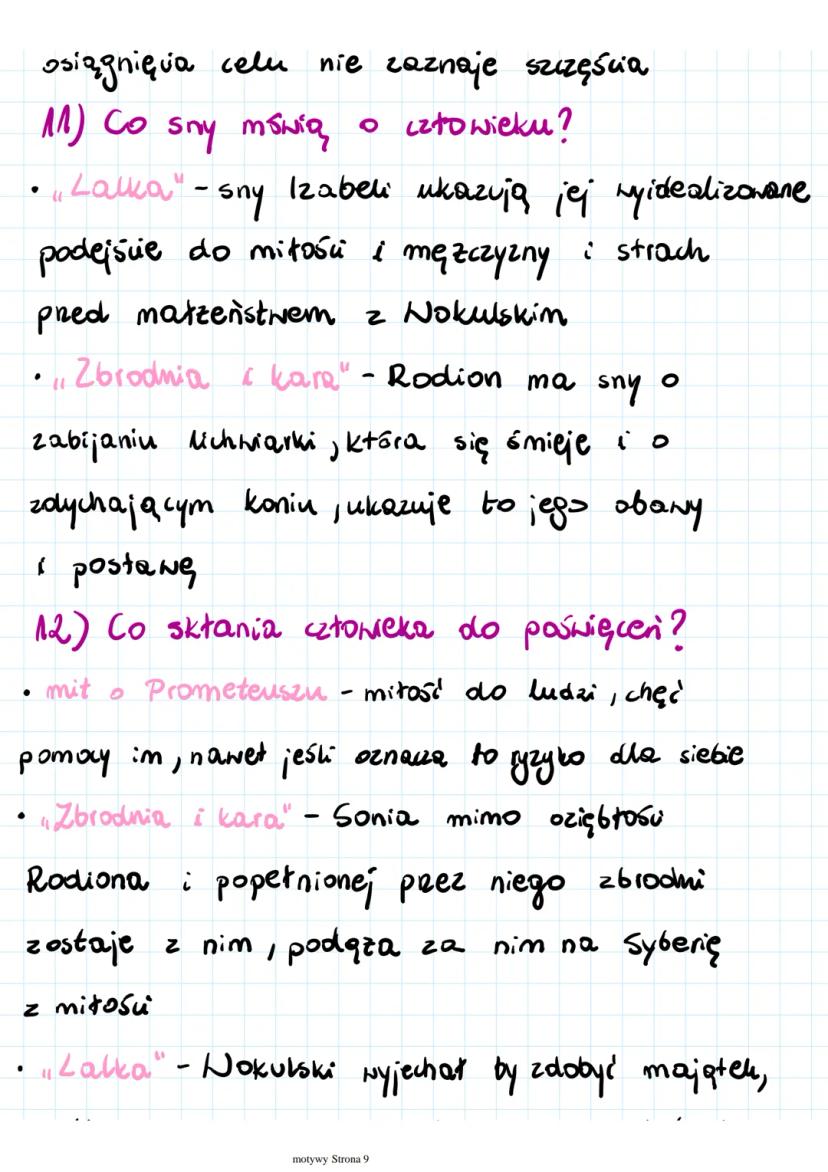 osiągnięcia celu nie zaznaje szczęścia
11) Co sny mówią o człowieku?
• „Lalka" - sny Izabeli ukazują jej wyidealizowane
podejście do miłości i mężczyzny i strach
przed małżeństwem z Wokulskim
• „Zbrodnia i kara" - Rodion ma sny o
zabijaniu lichwiarki, która się śmieje i o
zdychającym koniu, ukazuje to jego obawy
i postawę
12) Co skłania człowieka do poświęceń?
• mit o Prometeuszu - miłość do ludzi, chęć
pomocy im, nawet jeśli oznacza to ryzyko dla siebie
• „Zbrodnia i kara" - Sonia mimo oziębłości
Rodiona i popełnionej przez niego zbrodni
zostaje z nim, podąża za nim na Syberię
z miłości
• „Lalka" - Wokulski wyjechał by zdobyć majątek,
motywy Strona 9